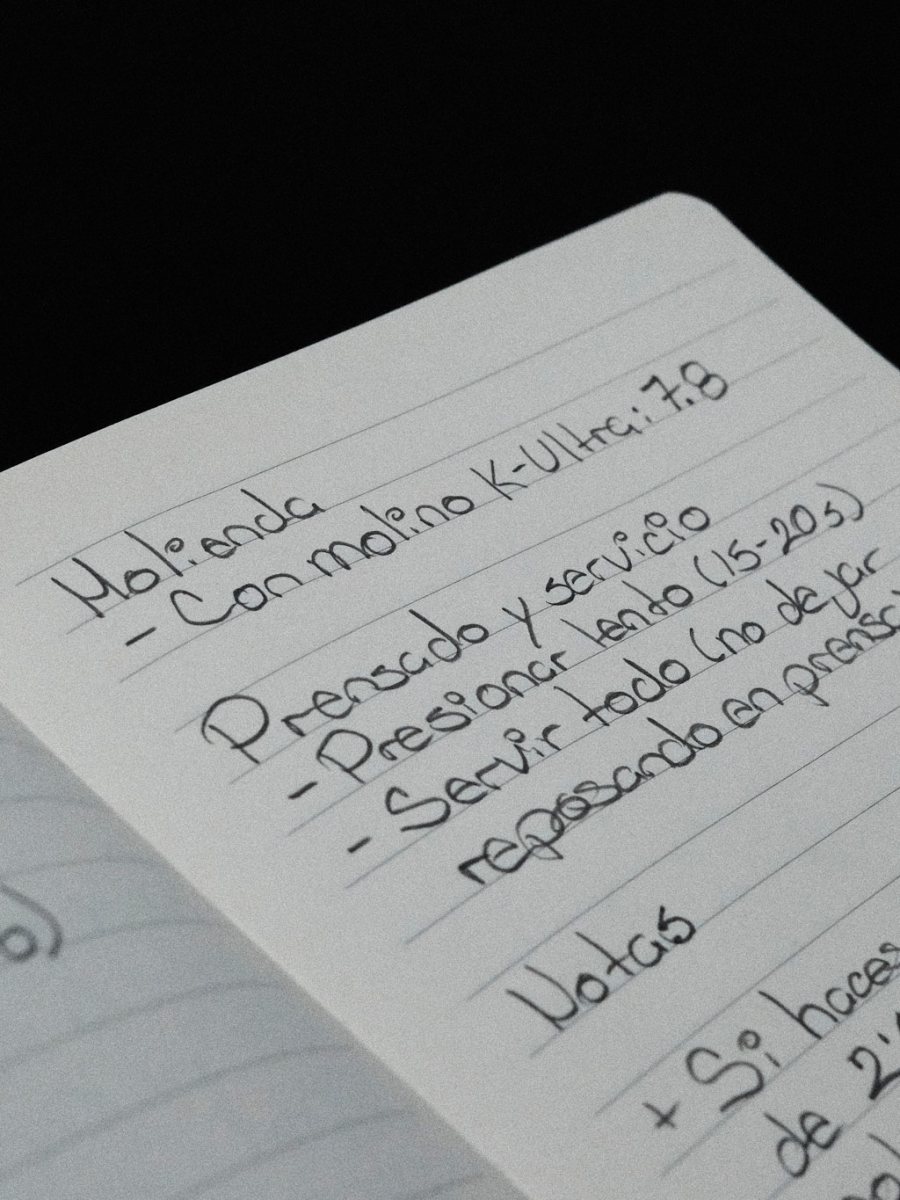 Molienda
- Con molino K-Ultra: 7.8
Prensado y servicio
- Presionar lento (15-20s)
- Servir todo (no dejar
reposando en
Notas
+ Si haces
de